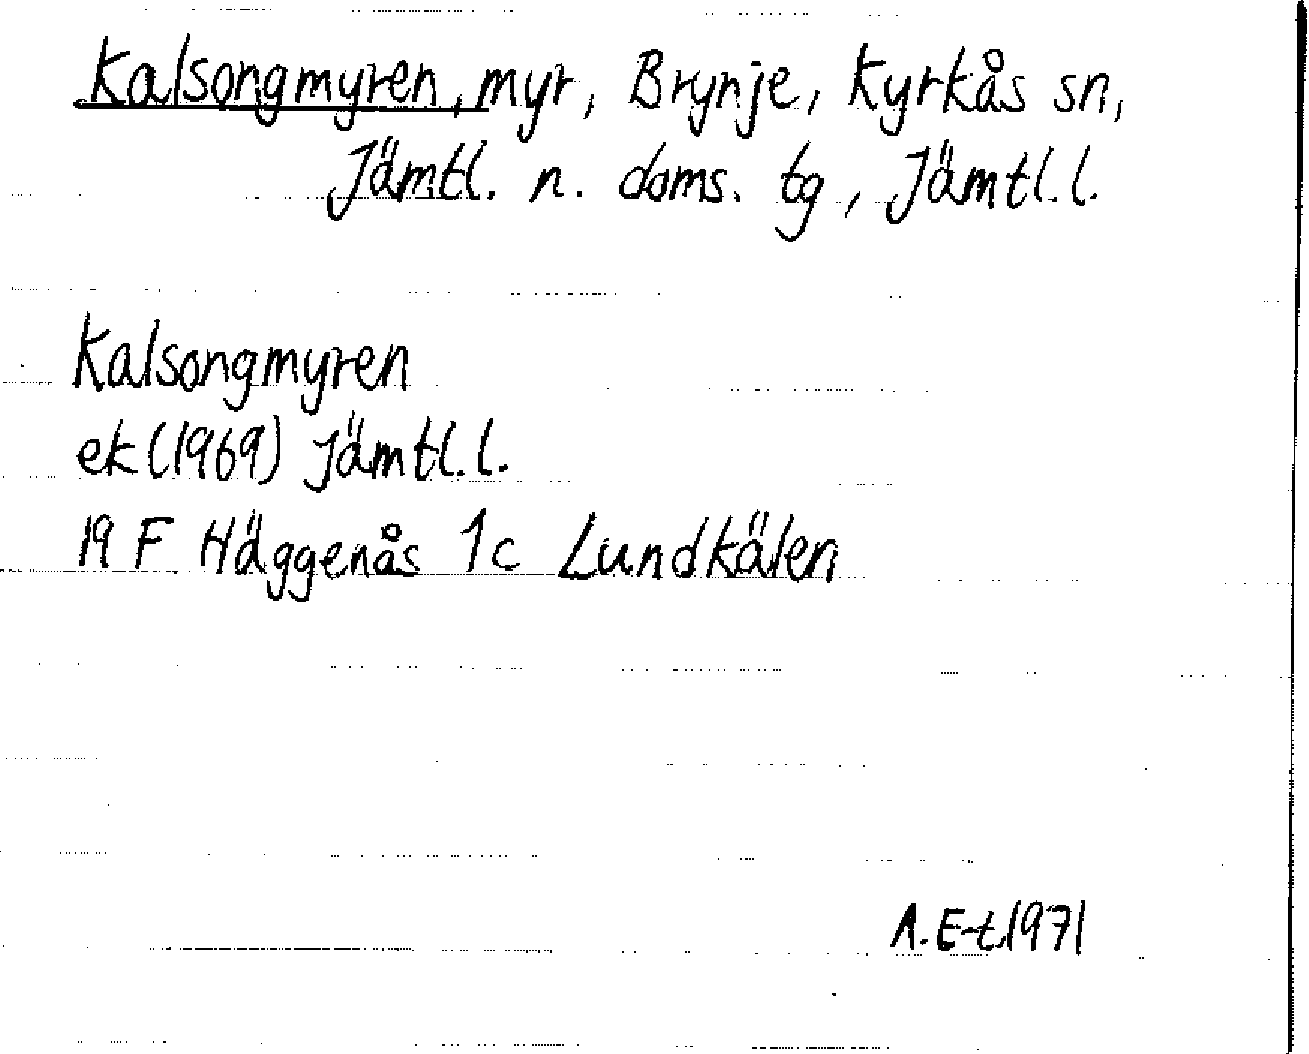 Kalsongmyren, myr, Brynje, Kyrkås sn,
Jämtl. n. doms. tg, Jämtl. l.
Kalsongmyren
ek (1969) Jämtl. l.
19 F Häggenås 1c Lundkälen
A. E-t 1971